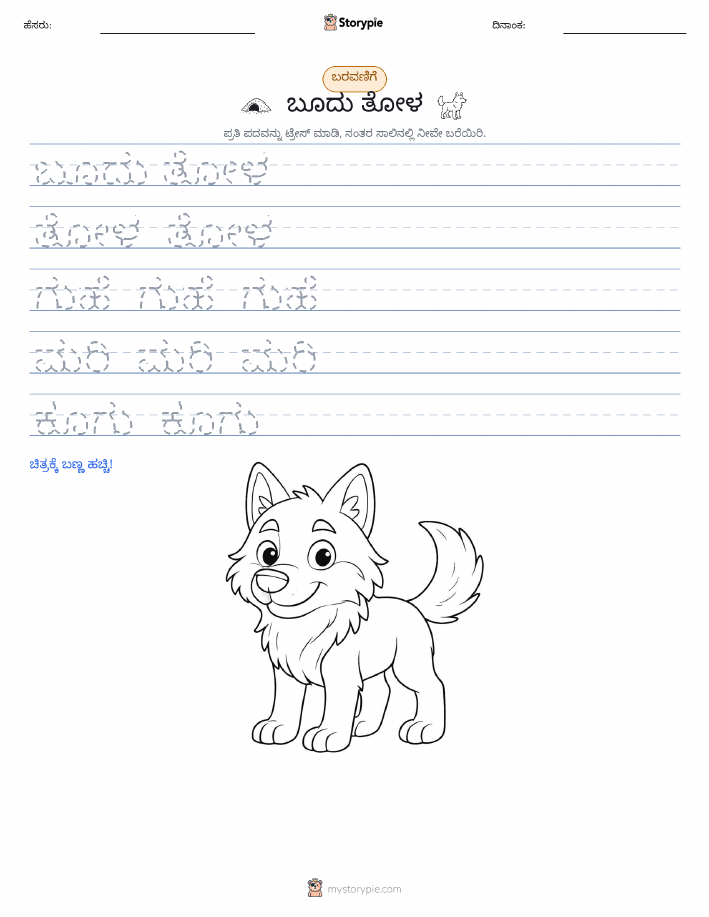 ಹೆಸರು: Storypie ದಿನಾಂಕ:
ಬರವಣಿಗೆ
ಬೂದು ತೋಳ
ಪ್ರತಿ ಪದವನ್ನು ಟ್ರೇಸ್ ಮಾಡಿ, ನಂತರ ಸಾಲಿನಲ್ಲಿ ನೀವೇ ಬರೆಯಿರಿ.
ಬೂದು ತೋಳ
ತೋಳ ತೋಳ
ಗುಹೆ ಗುಹೆ ಗುಹೆ
ಮರಿ ಮರಿ ಮರಿ
ಕೂಗು ಕೂಗು
ಚಿತ್ರಕ್ಕೆ ಬಣ್ಣ ಹಚ್ಚಿ!
mystorypie.com